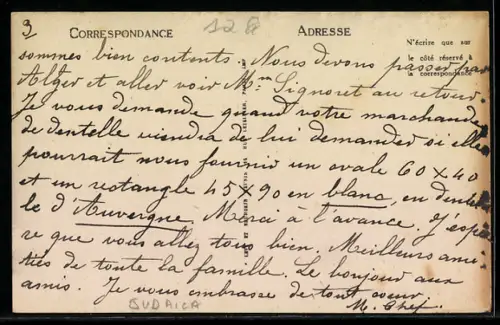 3
128
CORRESPONDANCE
ADRESSE
N'écrire que sur
le côté réservé à
la correspondance
sommes bien contents. Nous devons passer par
Alger et aller voir Mme Signoret au retour.
Je vous demande quand votre marchande
de dentelle viendra de lui demander si elle
pourrait nous fournir un ovale 60 x 40
et un rectangle 45 x 90 en blanc, en dentel
le d'Auvergne. Merci à l'avance. J'espè
re que vous allez tous bien. Meilleurs ami-
tiés de toute la famille. Le bonjour aux
amis. Je vous embrasse de tout coeur
M. Chef.
JUDAICA